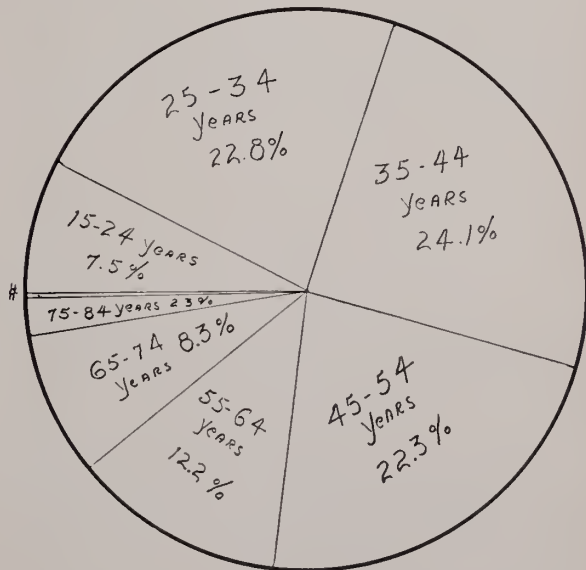 25-34
years
22.8%
35-44
years
24.1%
15-24 years
7.5%
#
75-84 years 2.3%
65-74 8.3%
years
55-64
years
12.2%
45-54
years
22.3%